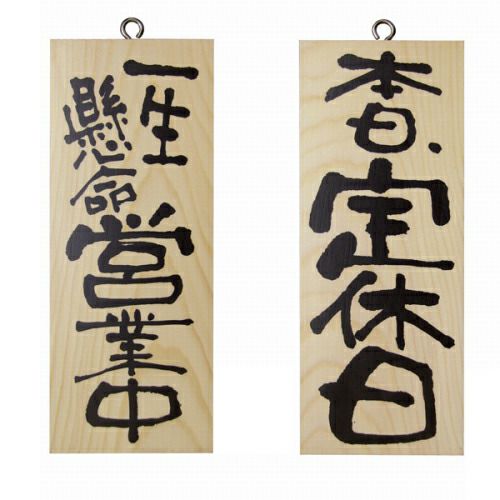 一生
懸命
営業中
本日、
定休日